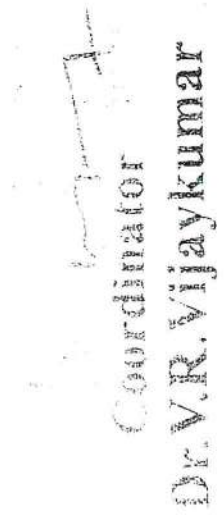 Coordinator
Dr. V.R. Vijaykumar